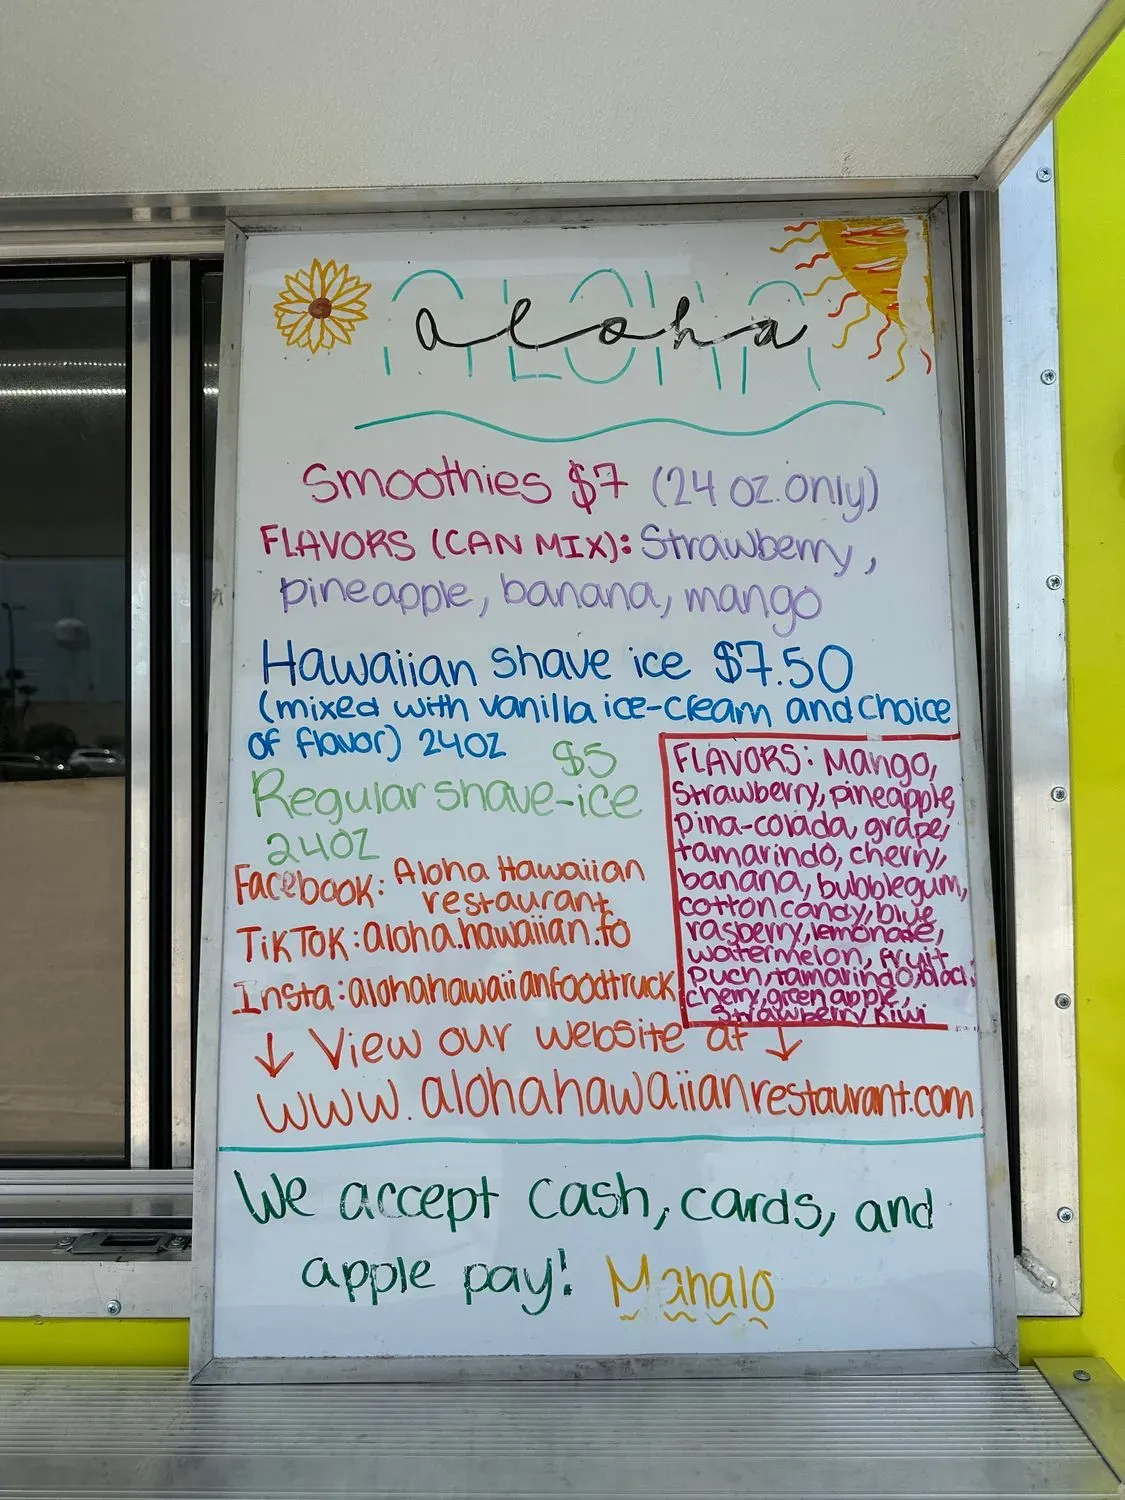 ALOHA
aloha
Smoothies $7 (24 oz. only)
FLAVORS (CAN MIX): Strawberry,
pineapple, banana, mango
Hawaiian shave ice $7.50
(mixed with vanilla ice-cream and choice
of flavor) 24oz
$5
Regular shave-ice
24oz
FLAVORS: Mango,
Strawberry, pineapple,
pina-colada, grape,
tamarindo, cherry,
banana, bubblegum,
cotton candy, blue
rasberry, lemonade,
watermelon, Fruit
puch, tamarindo, black
cherry, green apple,
Strawberry Kiwi
Facebook: Aloha Hawaiian
restaurant
TikTOK: aloha.hawaiian.fo
Insta: alohahawaiianfoodtruck
↓ View our website at ↓
www.alohahawaiianrestaurant.com
We accept cash, cards, and
apple pay! Mahalo